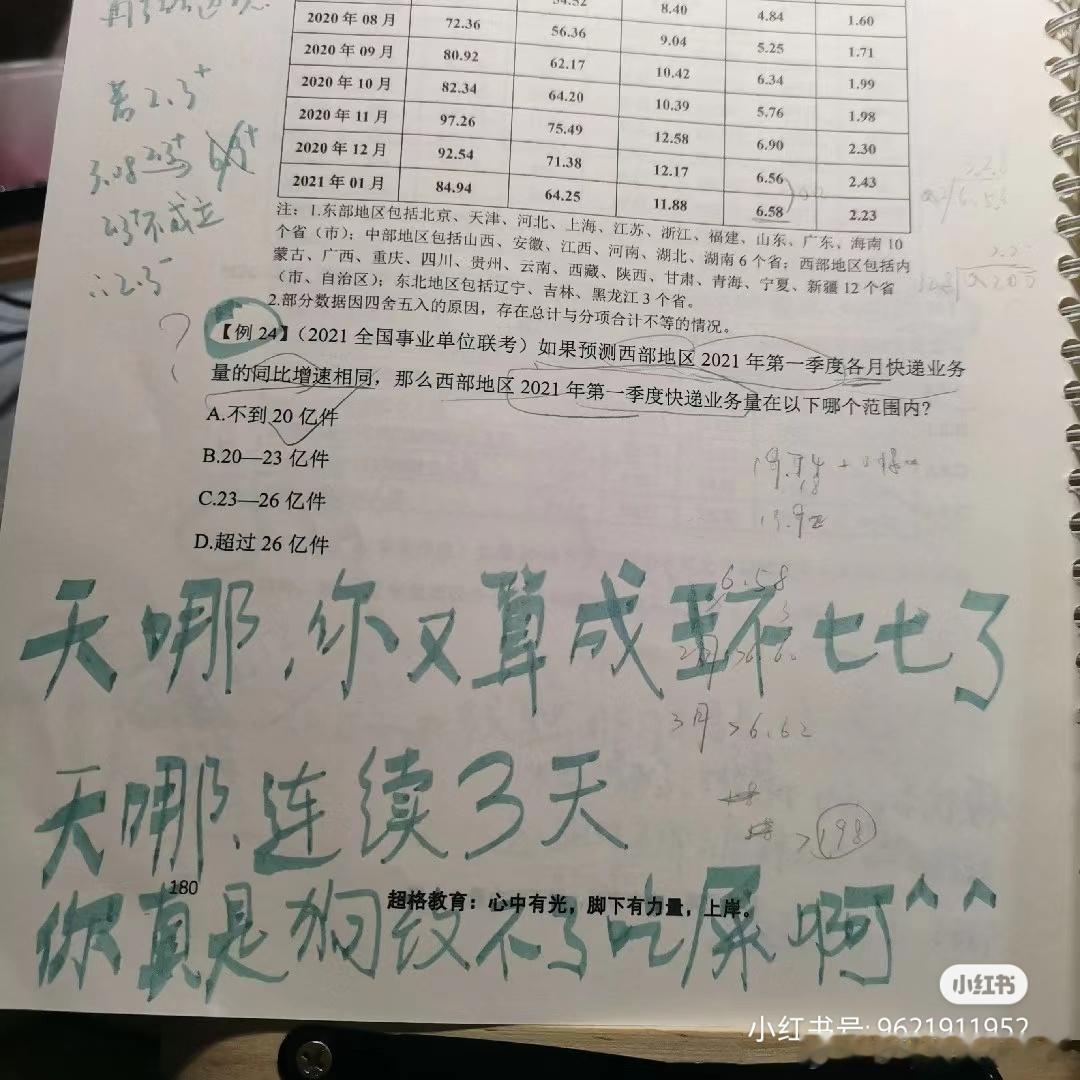 54.52 8.40 4.84 1.60
2020 年 08 月 72.36 56.36 9.04 5.25 1.71
2020 年 09 月 80.92 62.17 10.42 6.34 1.99
2020 年 10 月 82.34 64.20 10.39 5.76 1.98
2020 年 11 月 97.26 75.49 12.58 6.90 2.30
2020 年 12 月 92.54 71.38 12.17 6.56 2.43
2021 年 01 月 84.94 64.25 11.88 6.58 2.23
若2.3⁺
不成立
∴2.3⁻
注：1.东部地区包括北京、天津、河北、上海、江苏、浙江、福建、山东、广东、海南 10
个省（市）；中部地区包括山西、安徽、江西、河南、湖北、湖南 6 个省；西部地区包括内
蒙古、广西、重庆、四川、贵州、云南、西藏、陕西、甘肃、青海、宁夏、新疆 12 个省
（市、自治区）；东北地区包括辽宁、吉林、黑龙江 3 个省。
2.部分数据因四舍五入的原因，存在总计与分项合计不等的情况。
【例 24】（2021 全国事业单位联考）如果预测西部地区 2021 年第一季度各月快递业务
量的同比增速相同，那么西部地区 2021 年第一季度快递业务量在以下哪个范围内？
A.不到 20 亿件
B.20—23 亿件
C.23—26 亿件
D.超过 26 亿件
6.58
天哪,你又算成环比七了
3月 >6.62
天哪、连续3天
>198
180
超格教育：心中有光，脚下有力量，上岸。
你真是狗改不了吃屎啊^^
小红书
小红书号: 9621911952